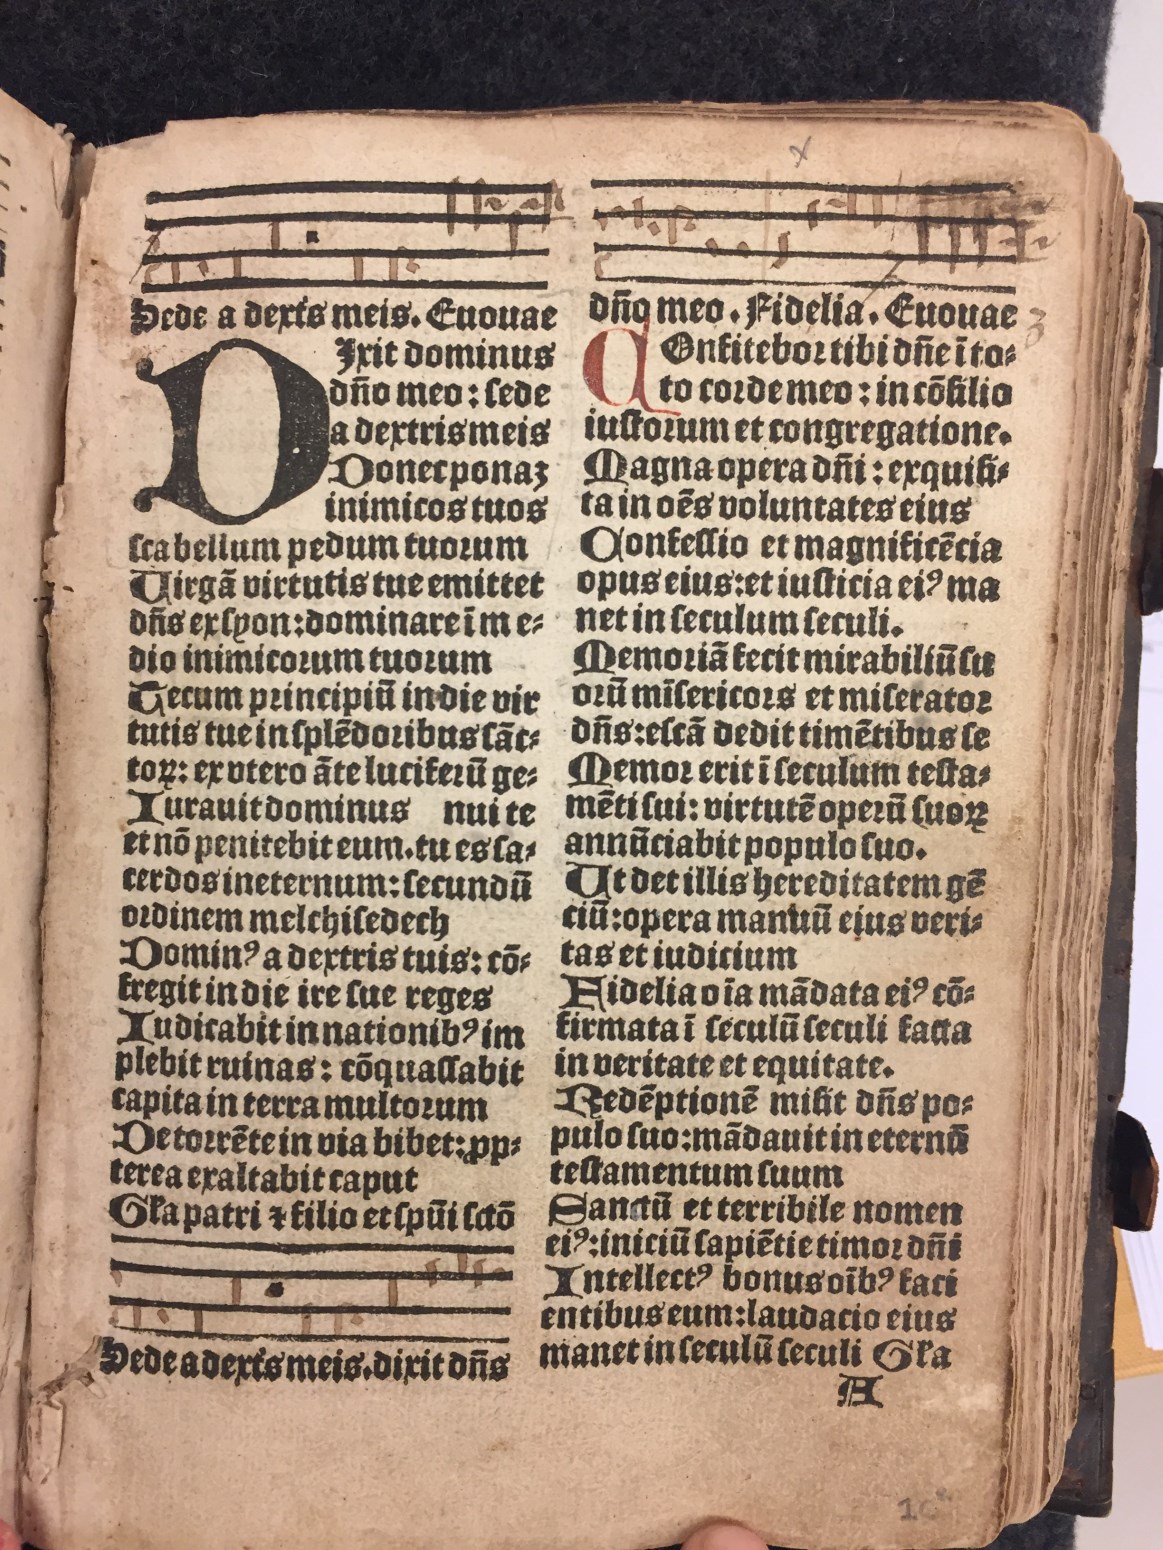 Sede a dext̄s meis. Euouae
DIxit dominus
dn̄o meo : sede
a dextris meis
Donec ponaꝫ
inimicos tuos
scabellum pedum tuoꝛum
Uirgā virtutis tue emittet
dn̄s ex syon : dominare ī me⸗
dio inimicoꝛum tuoꝛum
Tecum pꝛincipiū in die vir
tutis tue in splēdoꝛibus sāc⸗
toꝝ : ex vtero āte luciferū ge⸗
Iurauit dominus nui te
et nō penitebit eum. tu es sa⸗
cerdos in eternum : secundū
oꝛdinem melchisedech
Dominꝰ a dextris tuis : cō⸗
fregit in die ire sue reges
Iudicabit in nationibꝰ im
plebit ruinas : cōquassabit
capita in terra multoꝛum
De toꝛrēte in via bibet : ꝓp⸗
terea exaltabit caput
Gl̄a patri ⁊ filio et spūi sctō
Sede a dext̄s meis. dixit dn̄s
dn̄o meo. Fidelia. Euouae
COnfiteboꝛ tibi dn̄e ī to⸗
to coꝛde meo : in cōsilio
iustoꝛum et congregatione.
Magna opera dn̄i : exquisi⸗
ta in oēs voluntates eius
Confessio et magnificēcia
opus eius : et iusticia eiꝰ ma
net in seculum seculi.
Memoꝛiā fecit mirabiliū su
oꝛū mīsericoꝛs et miseratoꝛ
dn̄s : escā dedit timētibus se
Memoꝛ erit ī seculum testa⸗
mēti sui : virtutē operū suoꝝ
annūciabit populo suo.
Ut det illis hereditatem gē
ciū : opera manuū eius veri⸗
tas et iudicium
Fidelia oīa mādata eiꝰ cō⸗
firmata ī seculū seculi facta
in veritate et equitate.
Redēptionē misit dn̄s po⸗
pulo suo : mādauit in eternū
testamentum suum
Sanctū et terribile nomen
eiꝰ : iniciū sapiētie timoꝛ dn̄i
Intellectꝰ bonus oībꝰ faci
entibus eum : laudacio eius
manet in seculū seculi Gl̄a
A